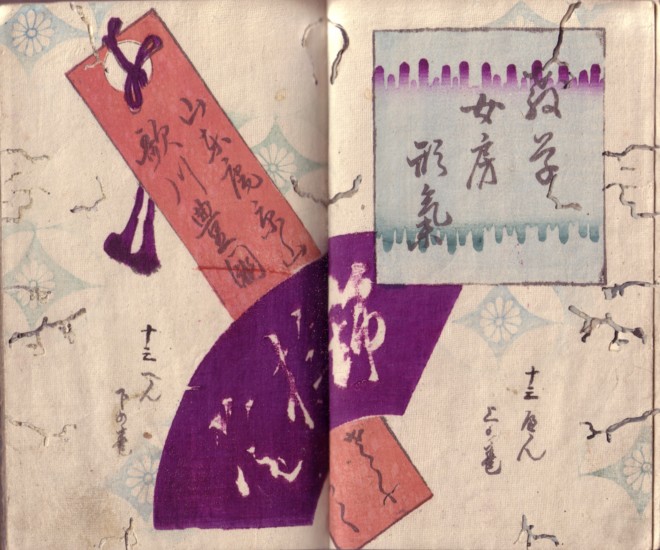 教草
女房
形氣
十三へん
上の巻
山東庵京山
歌川豊國
十三へん
下の巻